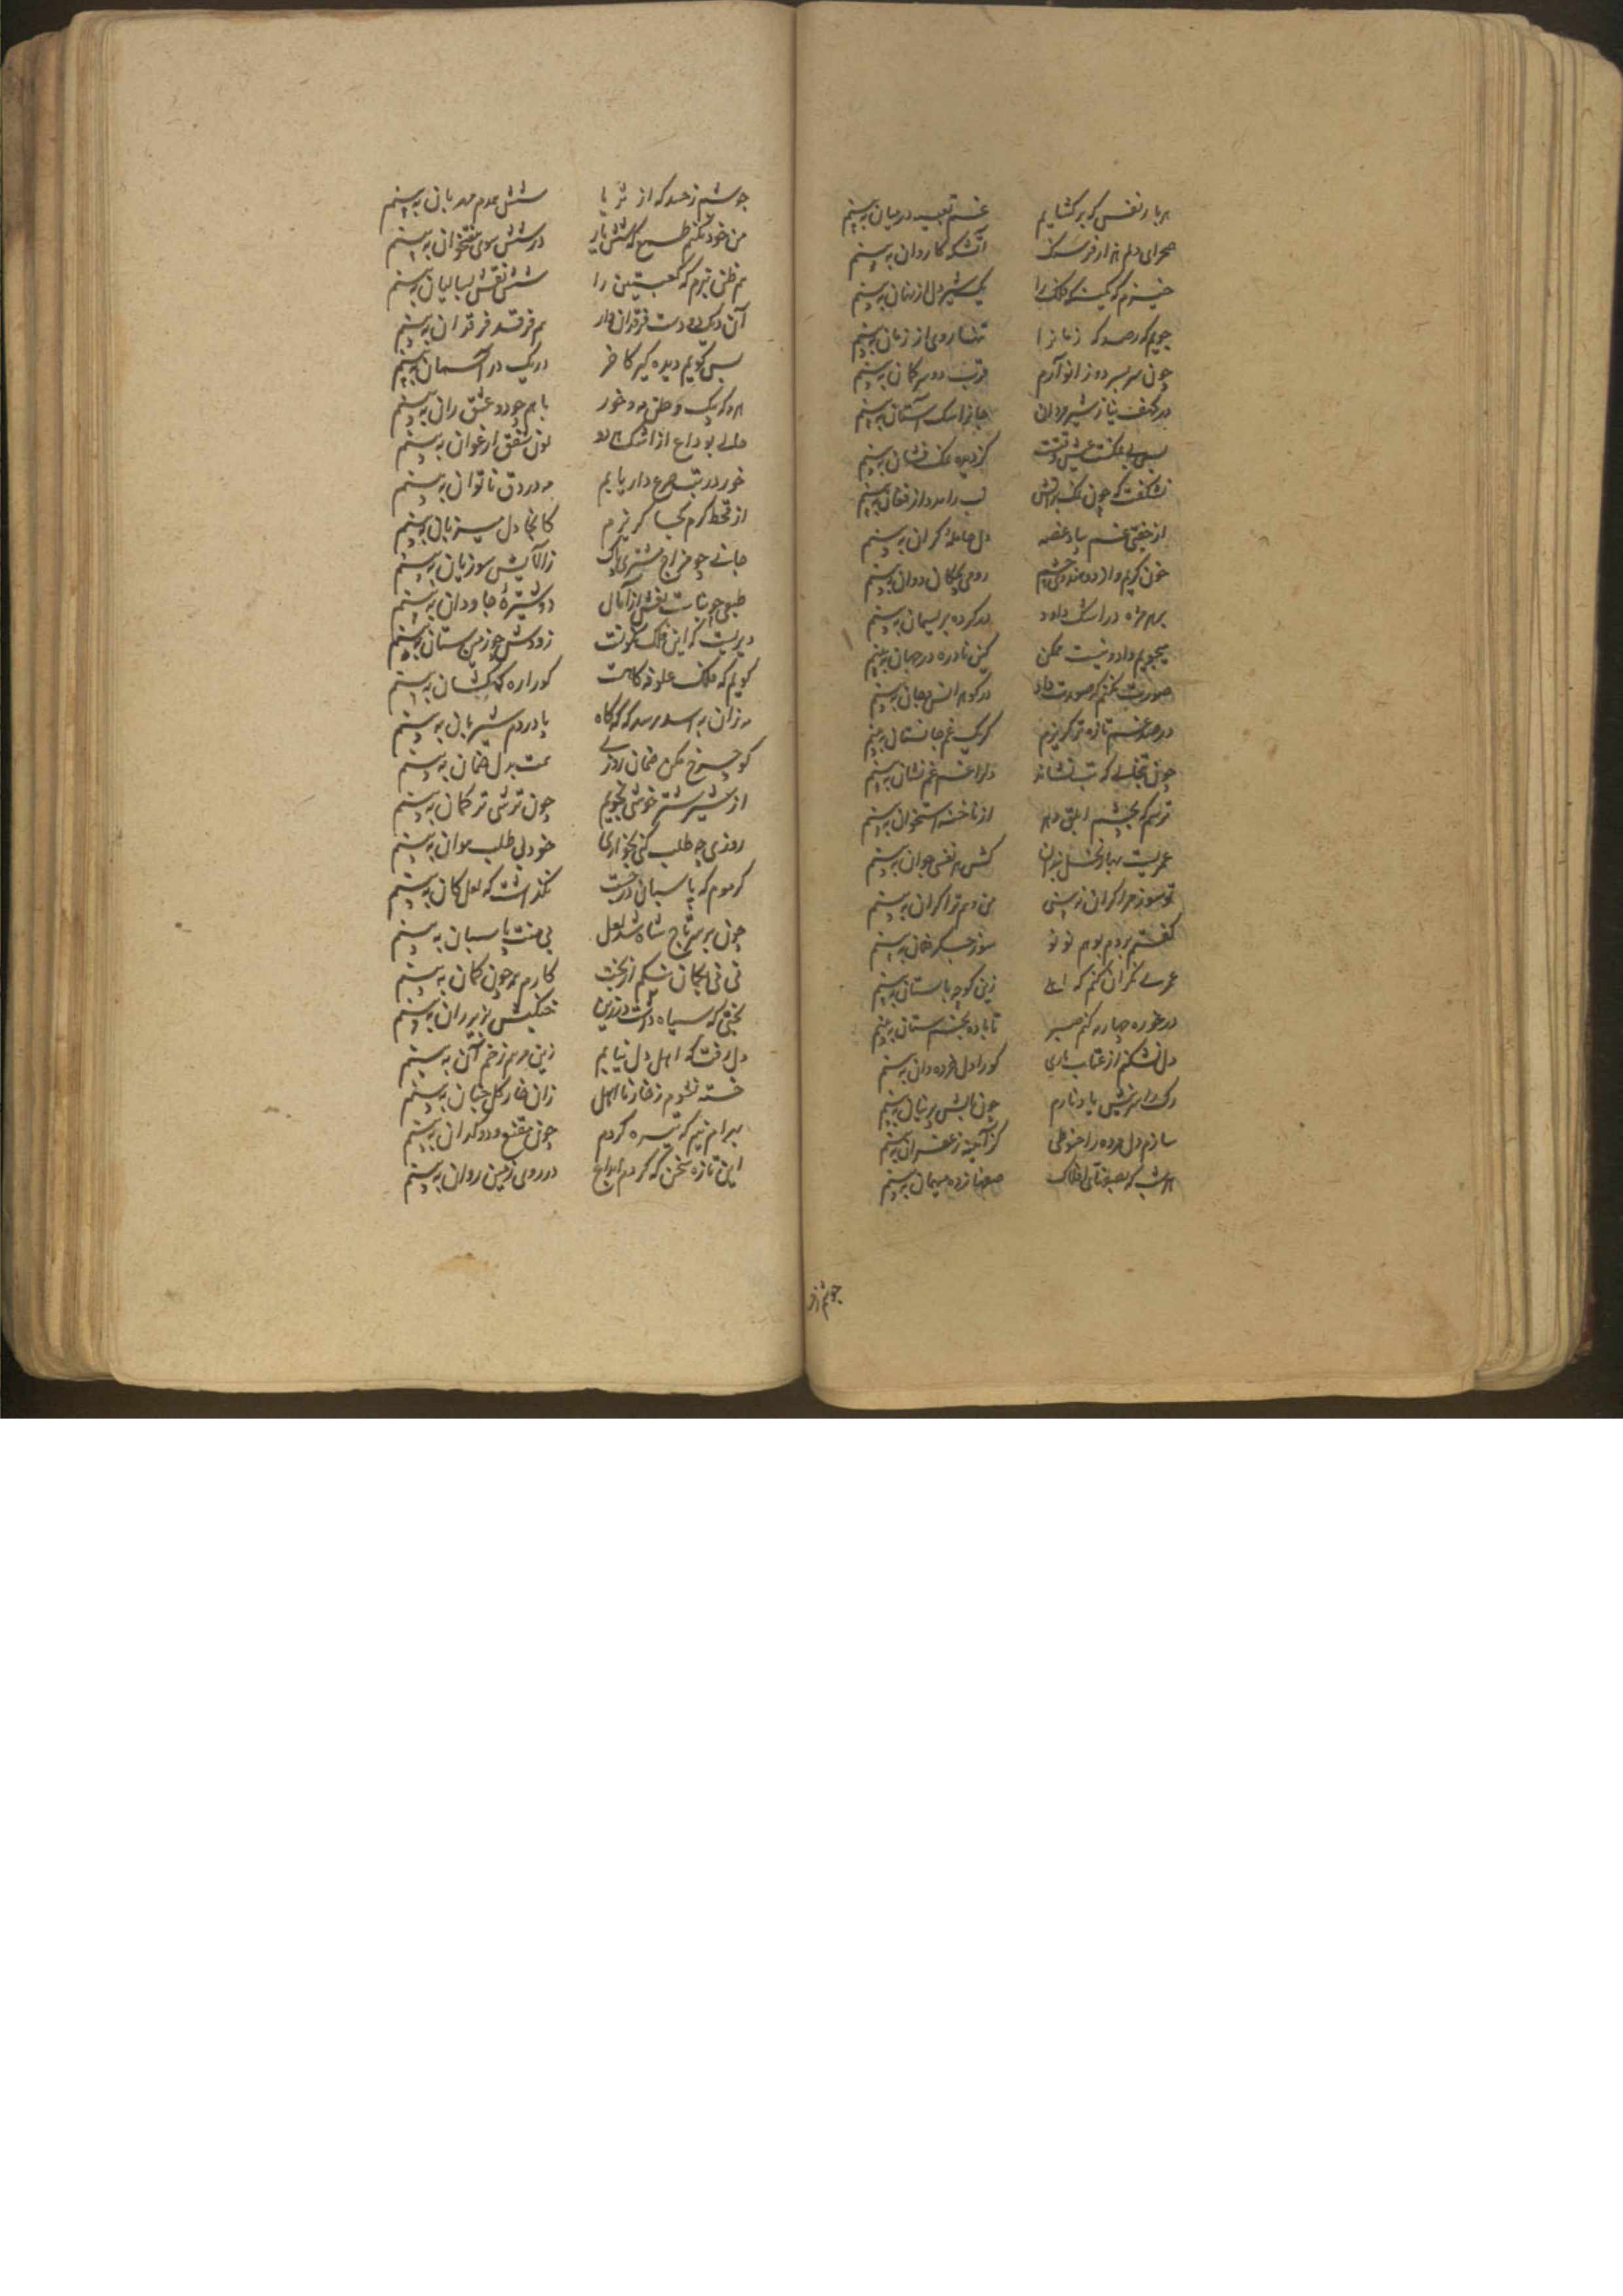 هر بار نفس که برگشایم غم تعبیه در میان به بینم
صحرای دلم هزار فرسنگ آتشگه کاروان به بینم
خیزم که کمینگه فلک را یک شیر دل از نهان به بینم
جویم که رصدگه زمانرا تنها روی از زمان به بینم
چون سر بسر دو زانو آرم قرب دو سر کمان به بینم
در کهف نیاز شیرمردان جانرا سگ آستان به بینم
بس بی نمکست عیش وقتست کز دیده نمک فشان به بینم
نشگفت که چون نمک بر آتش لب را مدد از فغان به بینم
از خفتن غم بیاد غصه دل حامله گران به بینم
خون گریم و از دو هندوی چشم رومی بچگان دوان به بینم
بر هر مژه در اشک داود در کرده بریسمان به بینم
میجویم داد و نیست ممکن کین نادره در جهان به بینم
صورت نکنم که صورت داد در گوهر انس و جان به بینم
در صد غم تازه تر گریزم گر یک غم جانستان به بینم
چون تب خالی که تب نشاند دلرا غم غم نشان به بینم
ترسم که بچشم ابلق دهر از ناخنه استخوان به بینم
عمریست بهار نخل بندان کش هر نفسی جوان به بینم
تو سوز مرا گران نه بینی من وهم ترا گران به بینم
گفتم بردم بوهم نو نو سوز جگر نهان به بینم
عمری نگران کنم که اهلی زین کوچه باستان به بینم
در غوره چهار مه کنم صبر تا باده بخمستان به بینم
دل نشکنم از عتاب یاری کورا دل مرده دان به بینم
رگ را سر نیش یاد نارم چون نالش پرنیان به بینم
سازم دل مرده را حنوطی کز آتینه زعفران به بینم
هر شب که بصفه های افلاک صفها زده میهمان به بینم
جوشم زحد
جوشم ز حسد که از ثریا شش همدم مهربان به بینم
من خود نکنم طمع که شش یار در شش سوی هفتخوان به بینم
هم ظن نبرم که کعبتین را شش نقش بسالیان به بینم
آن دیگ دو دست فرقدان وار هم فرقد فرقدان به بینم
بس گویم دیده گیر کاخر دریک در آسمان به بینم
مه در یک وطن مه و خور با هم چو دو عشق ران به بینم
حالی بوداع از اشک هر دو لون شفق ارغوان به بینم
خور در تب صرع دار یابم مه در دق ناتوان به بینم
از قحط کرم کجا گریزم کانجا دل میزبان به بینم
جانی چو مزاج مشتری پاک زآلایش سوزیان به بینم
طبعی چو بنات نعش از آمال دوشیزه جاودان به بینم
دیریست که این فلک نگونست زودش چو زمین ستان به بینم
گویم که فلک علوفه گاهست کورا ره کهکشان به بینم
مه زان به اسد رسد که گه گاه با دردم شیربان به بینم
کو چرخ مکن ضمان روزی همت بدل ضمان به بینم
از شیر شتر خوشی نجویم چون ترشی ترکمان به بینم
روزی چه طلب کنی بخواری خود بی طلب هوان به بینم
گرموم که پاسبان درجست نگذاشت که لعل کان به بینم
چون بر سر تاج شاه شد لعل بی منت پاسبان به بینم
نی نی بگمان نیکم از بخت کارم همه چون کمان به بینم
بختی که سیاه داشت در زین خنگیش بزیر ران به بینم
دل رفت که اهل دل نیابم زین مرهم زخم آن به بینم
خسته نشوم ز خار نا اهل زان خار گل جنان به بینم
بهرام نیم که تیره گردم چون مقنع و دوکدان به بینم
این تازه سخن که کردم ابداع در روی زمین روان به بینم